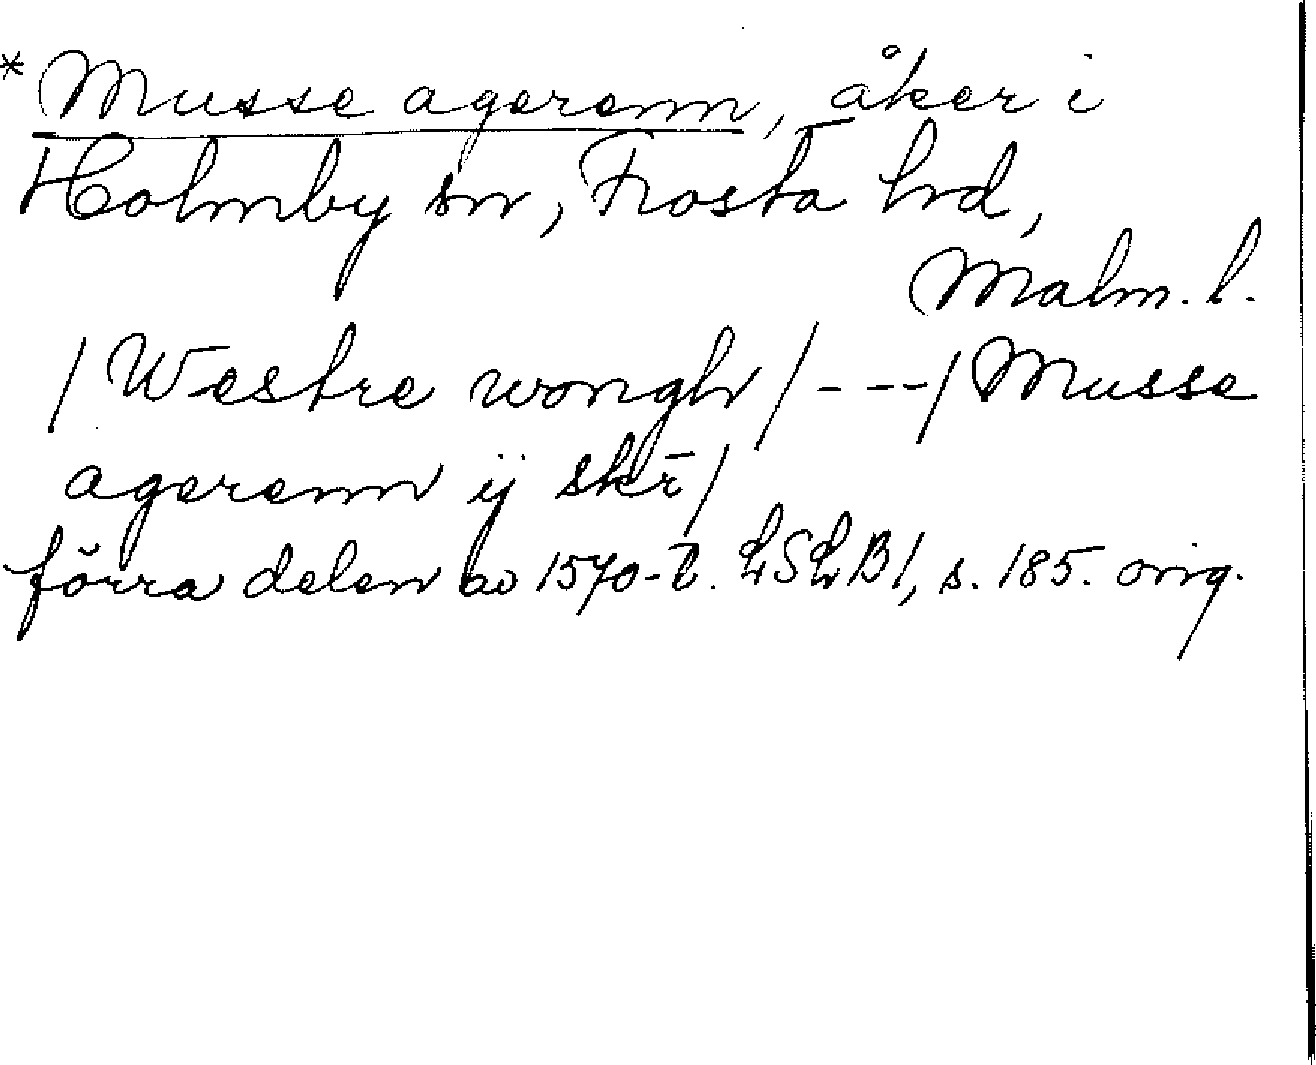 * Musse agerenn, åker i
Holmby sn, Frosta hd,
Malm. l.
/Westre wongh/---/Musse
agerenn ij skr̄/
förra delen av 1570-t. LSLB1, s. 185. orig.